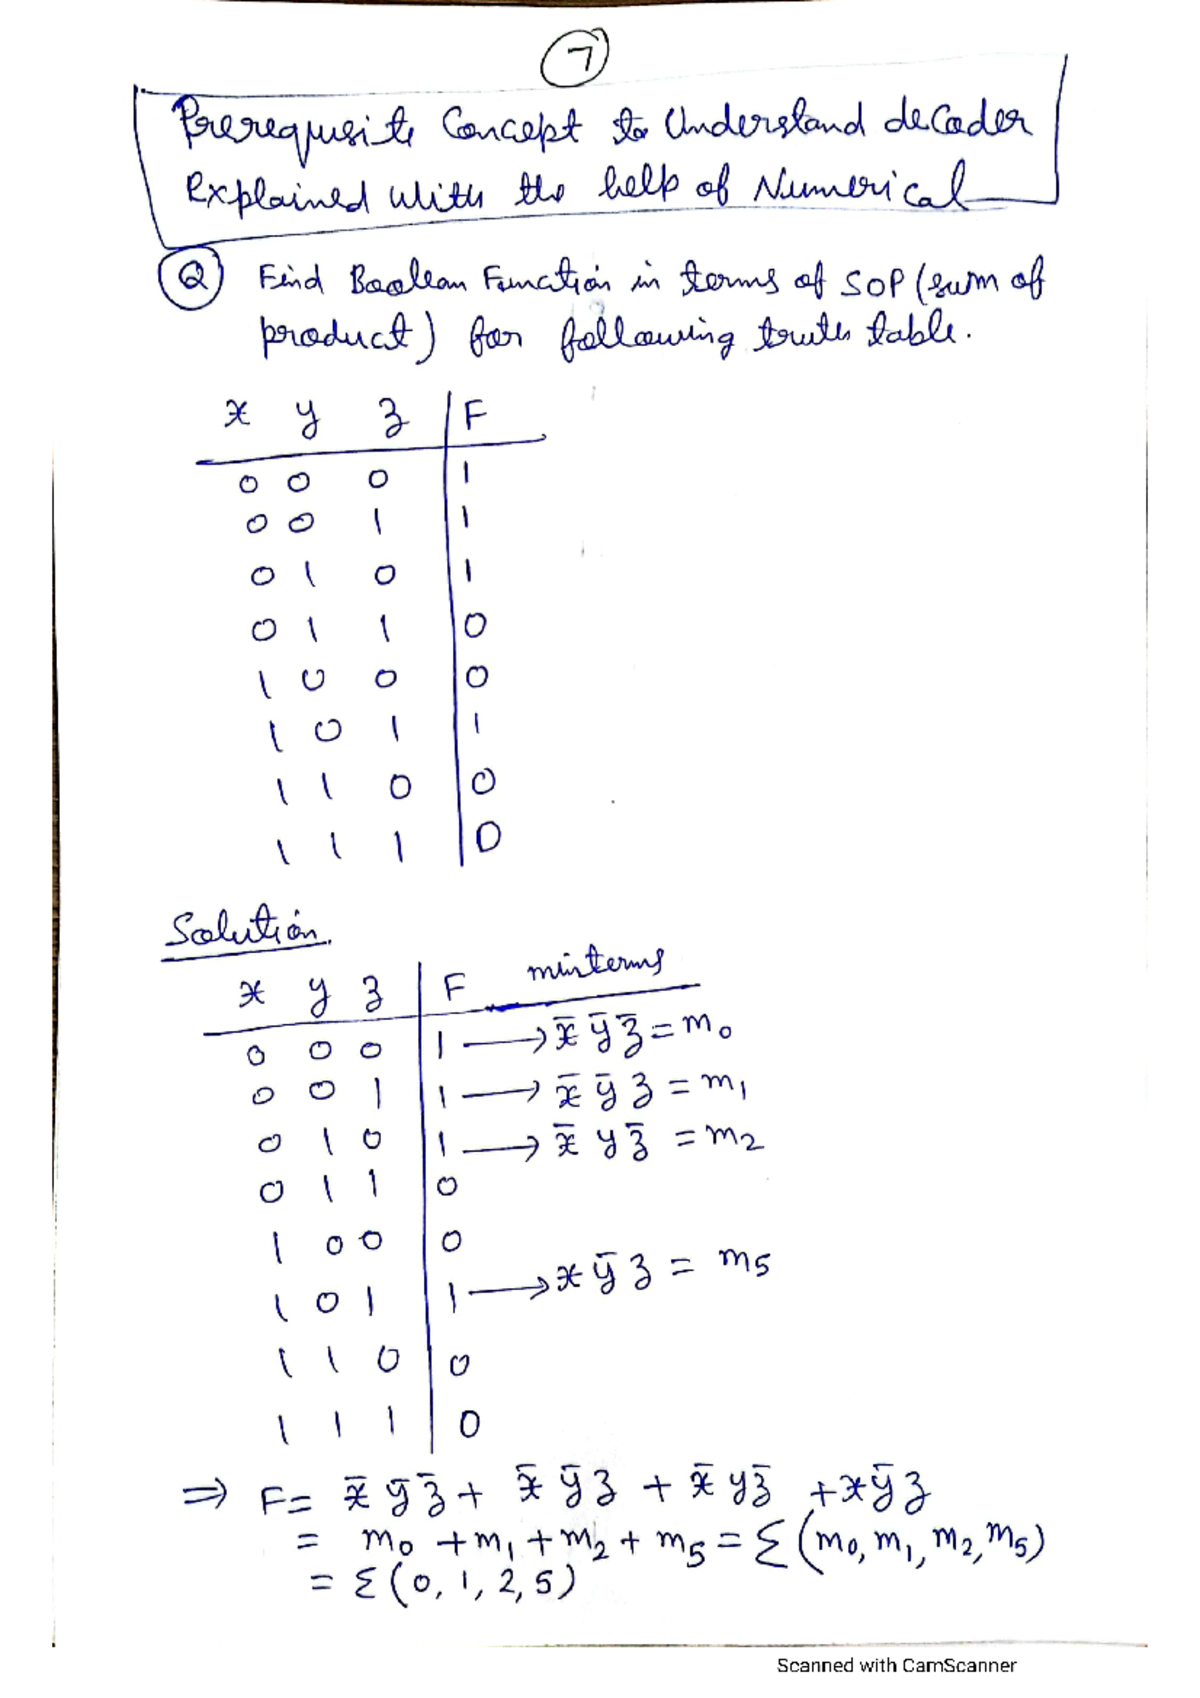 7
Prerequisite Concept to Understand decoder
explained with the help of Numerical
Q Find Boolean Function in terms of SOP (sum of
product) for following truth table.
x y z F
0 0 0 1
0 0 1 1
0 1 0 1
0 1 1 0
1 0 0 0
1 0 1 1
1 1 0 0
1 1 1 0
Solution.
x y z F minterms
0 0 0 1 → x̄ ȳ z̄ = m₀
0 0 1 1 → x̄ ȳ z = m₁
0 1 0 1 → x̄ y z̄ = m₂
0 1 1 0
1 0 0 0
1 0 1 1 → x ȳ z = m₅
1 1 0 0
1 1 1 0
⇒ F = x̄ ȳ z̄ + x̄ ȳ z + x̄ y z̄ + x ȳ z
= m₀ + m₁ + m₂ + m₅ = Σ (m₀, m₁, m₂, m₅)
= Σ (0, 1, 2, 5)
Scanned with CamScanner